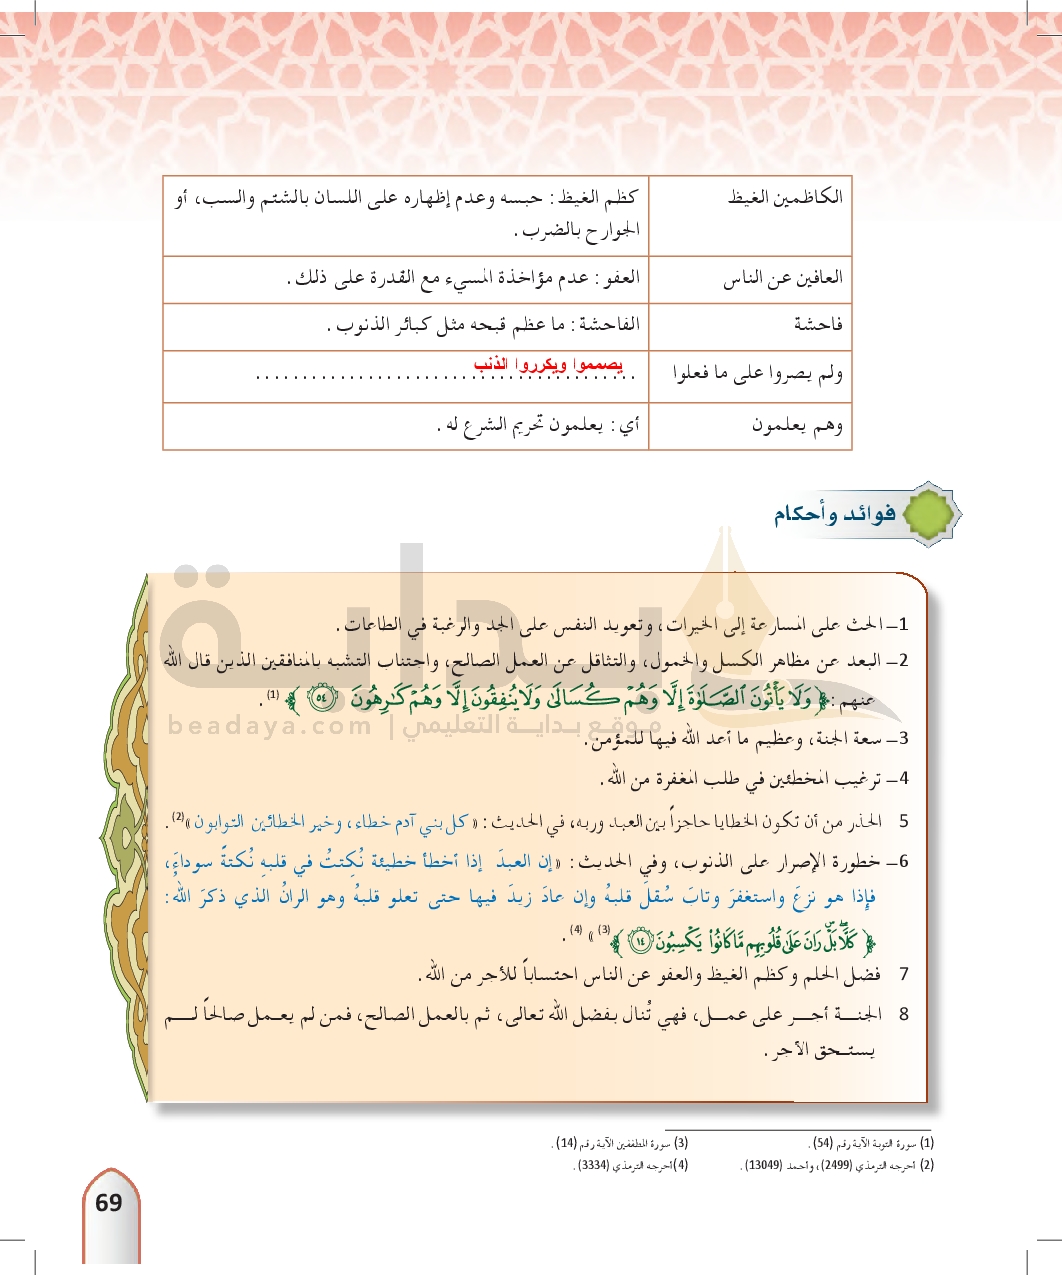 الكاظمين الغيظ	كظم الغيظ : حبسه وعدم إظهاره على اللسان بالشتم والسب، أو
الجوارح بالضرب .
العافين عن الناس	العفو : عدم مؤاخذة المسيء مع القدرة على ذلك .
فاحشة	الفاحشة : ما عظم قبحه مثل كبائر الذنوب .
ولم يصروا على ما فعلوا	يصمموا ويكرروا الذنب
وهم يعلمون	أي : يعلمون تحريم الشرع له .
فوائد وأحكام
1– الحث على المسارعة إلى الخيرات، وتعويد النفس على الجد والرغبة في الطاعات .
2– البعد عن مظاهر الكسل والخمول، والتثاقل عن العمل الصالح، واجتناب التشبه بالمنافقين الذين قال الله
عنهم : ﴿ وَلَا يَأْتُونَ ٱلصَّلَوٰةَ إِلَّا وَهُمْ كُسَالَىٰ وَلَا يُنفِقُونَ إِلَّا وَهُمْ كَٰرِهُونَ ٥٤ ﴾ (1) .
beadaya.com | موقع بداية التعليمي
بداية
3– سعة الجنة، وعظيم ما أعد الله فيها للمؤمن.
4– ترغيب المخطئين في طلب المغفرة من الله.
5 الحذر من أن تكون الخطايا حاجزاً بين العبد وربه، في الحديث : « كل بني آدم خطاء، وخير الخطائين التوابون »(2).
6– خطورة الإصرار على الذنوب، وفي الحديث : «إن العبدَ إذا أخطأ خطيئة نُكِتتُ في قلبهِ نُكتةً سوداءَ،
فإذا هو نزعَ واستغفرَ وتابَ سُقلَ قلبهُ وإن عادَ زيدَ فيها حتى تعلو قلبهُ وهو الرانُ الذي ذكرَ الله :
﴿ كَلَّا بَلْ رَانَ عَلَىٰ قُلُوبِهِم مَّا كَانُوا۟ يَكْسِبُونَ ١٤ ﴾ (3) » (4) .
7 فضل الحلم وكظم الغيظ والعفو عن الناس احتساباً للأجر من الله.
8 الجنـــة أجـــر على عمـــل، فهي تُنال بفضل الله تعالى، ثم بالعمل الصالح، فمن لم يعـمل صالحاً لـــم
يستـحق الأجر .
(1) سورة التوبة الآية رقم (54) .	(3) سورة المطففين الآية رقم (14) .
(2) أخرجه الترمذي (2499)، وأحمد (13049) .	(4) أخرجه الترمذي (3334) .
69